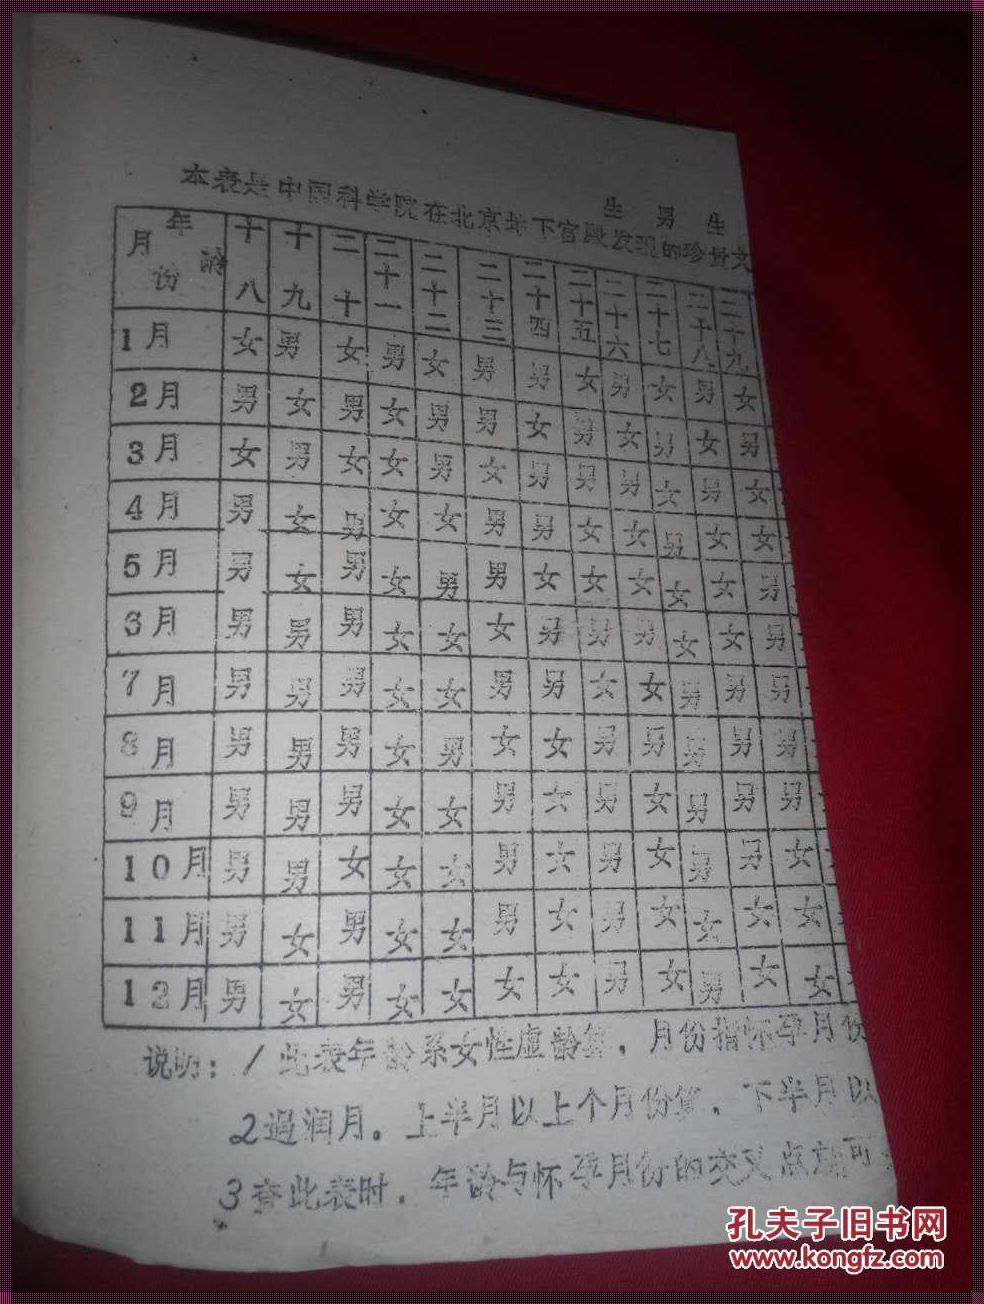 生 男 生
本表是中国科学院在北京地下宫殿发现的珍贵文
年龄 月份 十八 十九 二十 二十一 二十二 二十三 二十四 二十五 二十六 二十七 二十八 二十九
1月 女 男 女 男 女 男 男 女 男 女 男 女
2月 男 女 男 女 男 男 女 男 女 男 女 男
3月 女 男 女 女 男 女 男 男 男 女 男 女
4月 男 女 男 女 女 男 男 女 女 男 女 女
5月 男 女 男 女 男 男 女 女 女 女 女 男
6月 男 男 男 女 女 女 男 男 男 女 女 男
7月 男 男 男 女 女 男 男 女 女 男 男 男
8月 男 男 男 女 男 女 女 男 男 男 男 男
9月 男 男 男 女 女 男 女 男 女 男 男 男
10月 男 男 女 女 女 男 女 男 女 男 男 女
11月 男 女 男 女 女 男 女 男 女 女 女 女
12月 男 女 男 女 女 女 女 男 女 男 女 女
说明：1 此表年龄系女性虚龄算，月份指怀孕月份
2遇润月。上半月以上个月份算，下半月以
3查此表时，年龄与怀孕月份的交叉点就可
孔夫子旧书网
www.kongfz.com